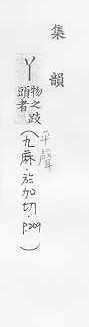 集韻
丫
物之歧
頭者
平聲
(九麻·於加切·P209)